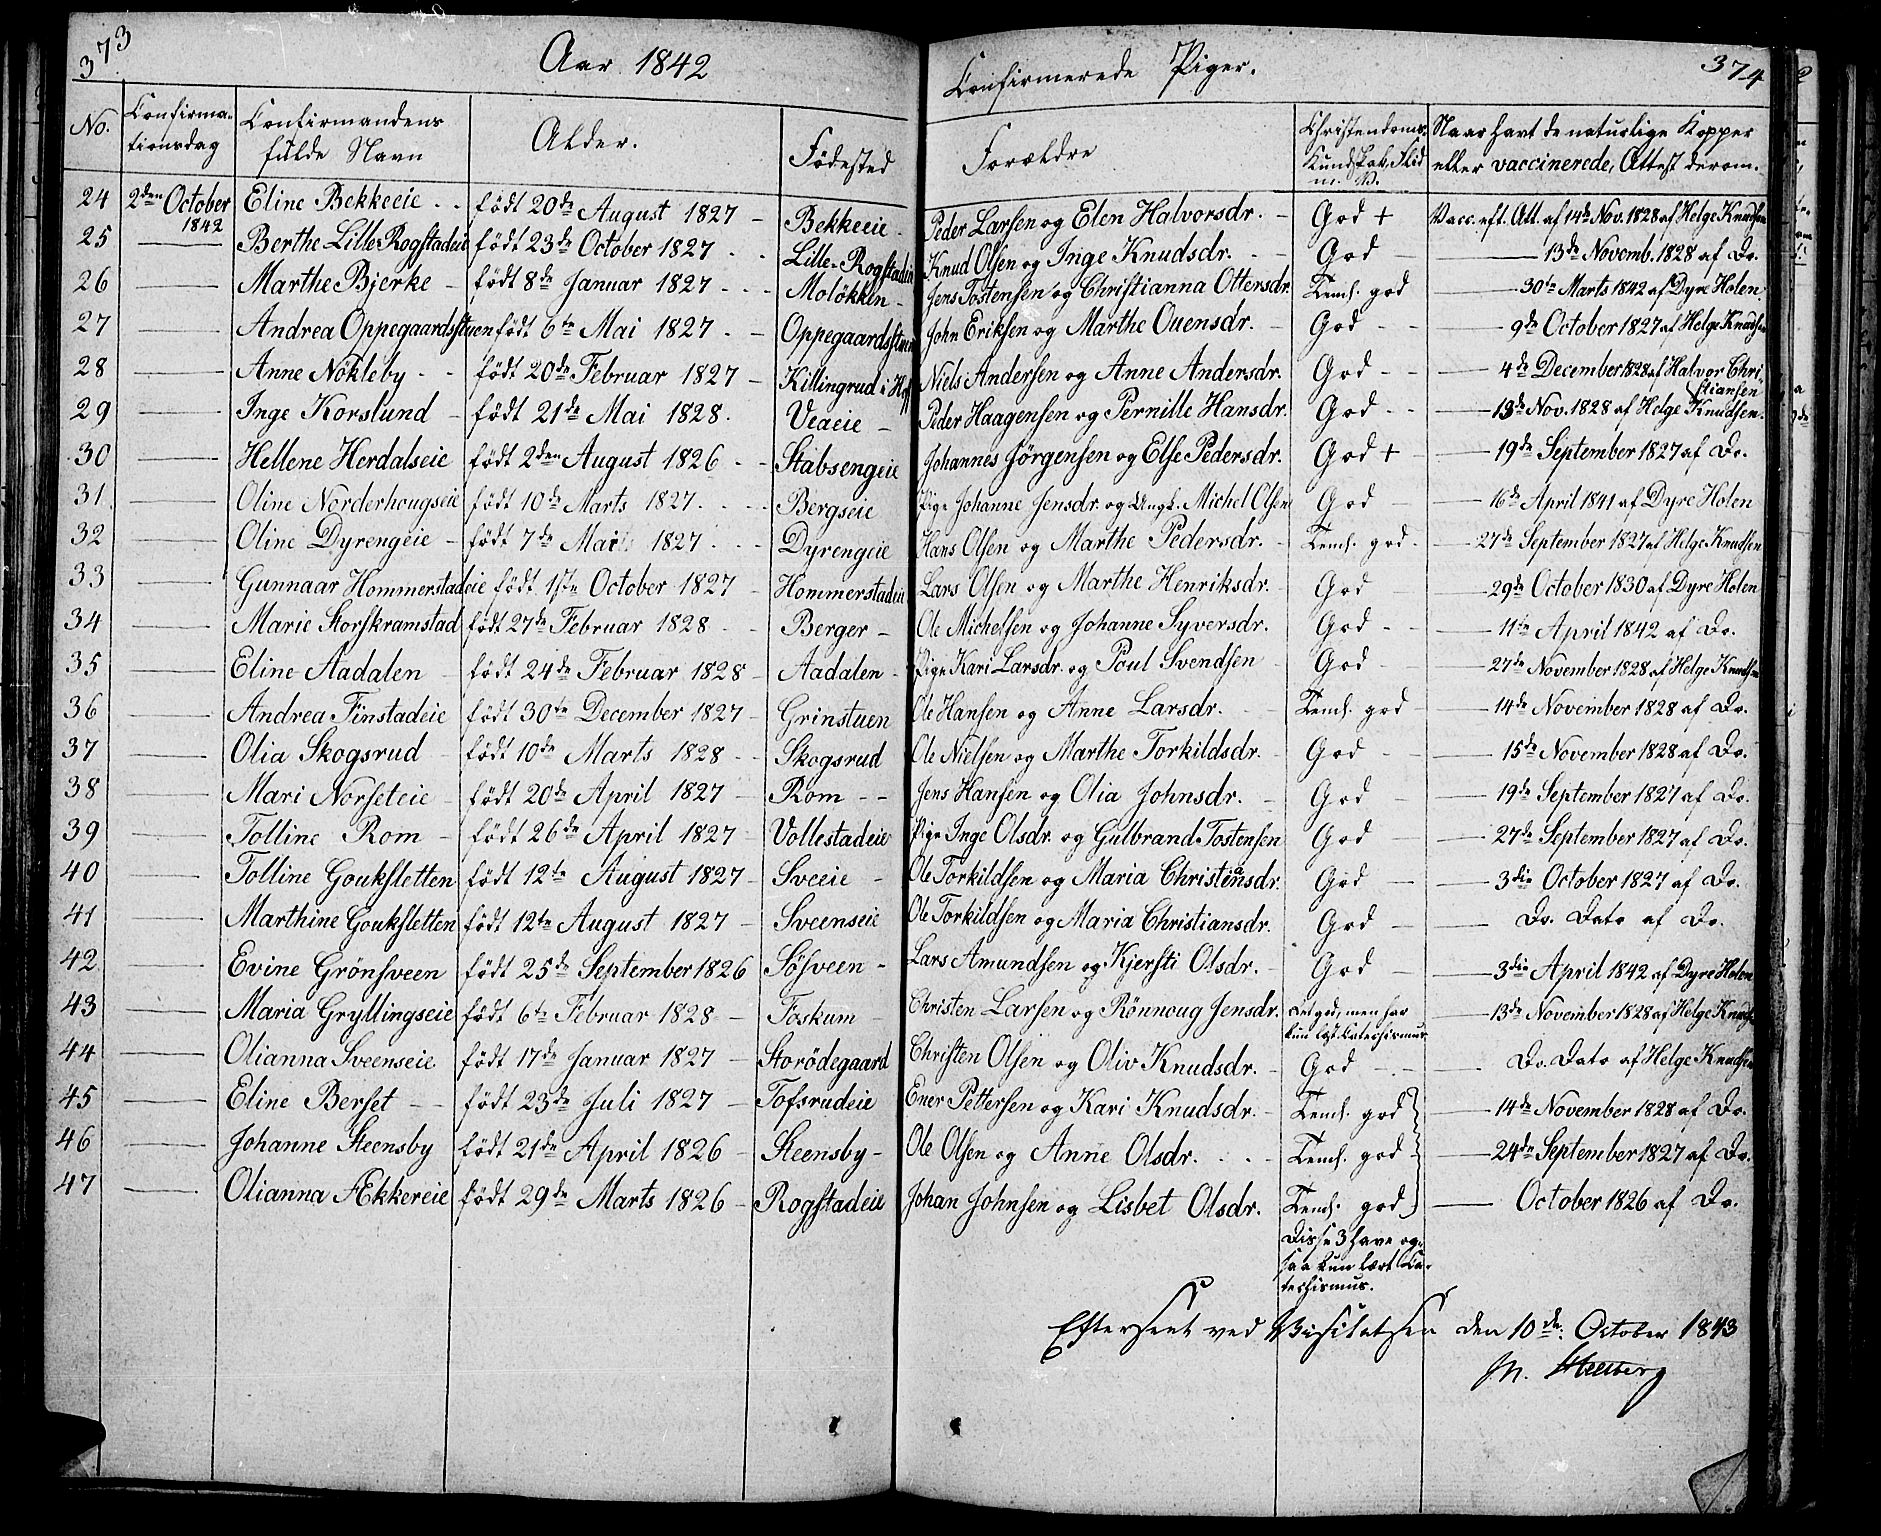 373
Aar 1842
Confirmerede Piger.
374
No. | Confirma-tionsdag | Confirmandens fulde Navn | Alder. | Födested | Forældre | Christendoms-Kundskab, Flid m. V. | Naar havt de naturlige Kopper eller vaccinerede, Attest derom.
24 | 2den October 1842 | Eline Bekkeeie | födt 20de August 1827 | Bekkeeie | Peder Larsen og Elen Halvorsdr. | God + | Vacc. eft. Att. af 14de Nov. 1828 af Helge Knudsen
25 | — | Berthe Lille Rogstadeie | födt 23de October 1827 | Lille-Rogstadeie | Knud Olsen og Inge Knudsdr. | God | — 13de Novemb. 1828 af Do.
26 | — | Marthe Bjerke | födt 8de Januar 1827 | Molökken | Jens Tostensen og Christianna Ottersdr. | Teml. god | — 30te Marts 1842 af Dyre Holen
27 | — | Andrea Oppegaardsstuen | födt 6te Mai 1827 | Oppegaardsstuen | John Eriksen og Marthe Ouensdr. | God | — 9de October 1827 af Helge Knudsen
28 | — | Anne Nökleby | födt 20de Februar 1827 | Killingrud i Hff | Niels Andersen og Anne Andersdr. | God | — 4de December 1828 af Halvor Christiansen
29 | — | Inge Korslund | födt 21de Mai 1828. | Veaeie | Peder Haagensen og Pernille Hansdr. | God | — 13de Nov. 1828 af Helge Knudsen.
30 | — | Hellene Herdalseie | födt 2den August 1826 | Stabsengeie | Johannes Jörgensen og Else Pedersdr. | God + | — 19de September 1827 af Do.
31 | — | Oline Norderhougseie | födt 10de Marts 1827. | Bergseie | Pige Johanne Jensdr. og Ungk. Michel Olsen | God | — 16de April 1841 af Dyre Holen
32 | — | Oline Dyrengeie | födt 7de 1827 | Dyrengeie | Hans Olsen og Marthe Pedersdr. | Teml. god | — 27de September 1827 af Helge Knudsen
33 | — | Gunnaar Hommerstadeie | födt 1ste October 1827 | Hommerstadeie | Lars Olsen og Marthe Henriksdr. | God | — 29de October 1830 af Dyre Holen
34 | — | Marie Storskramstad | födt 27de Februar 1828 | Berger | Ole Michelsen og Johanne Syversdr. | God | — 11te April 1842 af Do.
35 | — | Eline Aadalen | födt 24de Februar 1828 | Aadalen | Pige Kari Larsdr. og Poul Svendsen | God | — 27de November 1828 af Helge Knudsen
36 | — | Andrea Finstadeie | födt 30te December 1827 | Grinstuen | Ole Hansen og Anne Larsdr. | Teml. god | — 14de November 1828 af Do.
37 | — | Olia Skogsrud | födt 10de Marts 1828 | Skogsrud | Ole Nielsen og Marthe Torkildsdr. | God | — 15de November 1828 af Do.
38 | — | Mari Norseteie | födt 20de April 1827 | Rom | Jens Hansen og Olia Johnsdr. | God | — 19de September 1827 af Do.
39 | — | Tolline Rom | födt 26de April 1827 | Vollestadeie | Pige Inge Olsdr. og Gulbrand Tostensen | God | — 27de September 1827 af Do.
40 | — | Tolline Goukstetten | födt 12te August 1827 | Sveeie | Ole Torkildsen og Maria Christiansdr. | God | — 3die October 1827 af Do.
41 | — | Marthine Goukstetten | födt 12te August 1827 | Sveenseie | Ole Torkildsen og Maria Christiansdr. | God | — Do. Dato af Do.
42 | — | Evine Grönsveen | födt 25de September 1826 | Sösveen | Lars Amundsen og Kjersti Olsdr. | God | — 3die April 1842 af Dyre Holen
43 | — | Maria Gryllingseie | födt 6te Februar 1828 | Foskum | Christen Larsen og Rönnoug Jensdr. | Let god, men har kun læst Catechismus | — 13de November 1828 af Helge Knudsen
44 | — | Olianna Sveenseie | födt 17de Januar 1827 | Storödegaard | Christen Olsen og Oliv Knudsdr. | God | — Do. Dato af Helge Knudsen
45 | — | Eline Berset | födt 23de Juli 1827 | Tofsrudeie | Ener Pettersen og Kari Knudsdr. | Teml. god | — 14de November 1828 af Do.
46 | — | Johanne Steensby | födt 21de April 1826 | Steensby | Ole Olsen og Anne Olsdr. | Teml. god | — 24de September 1827 af Do.
47 | — | Olianna Ækkereie | födt 29de Marts 1826 | Rogstadeie | Johan Johnsen og Lisbet Olsdr. | Teml. god | — October 1826 af Do.
Disse 3 have og-
saa kun læst Ca-
techismus.
Efterseet ved Visitatsen den 10de October 1843
M.